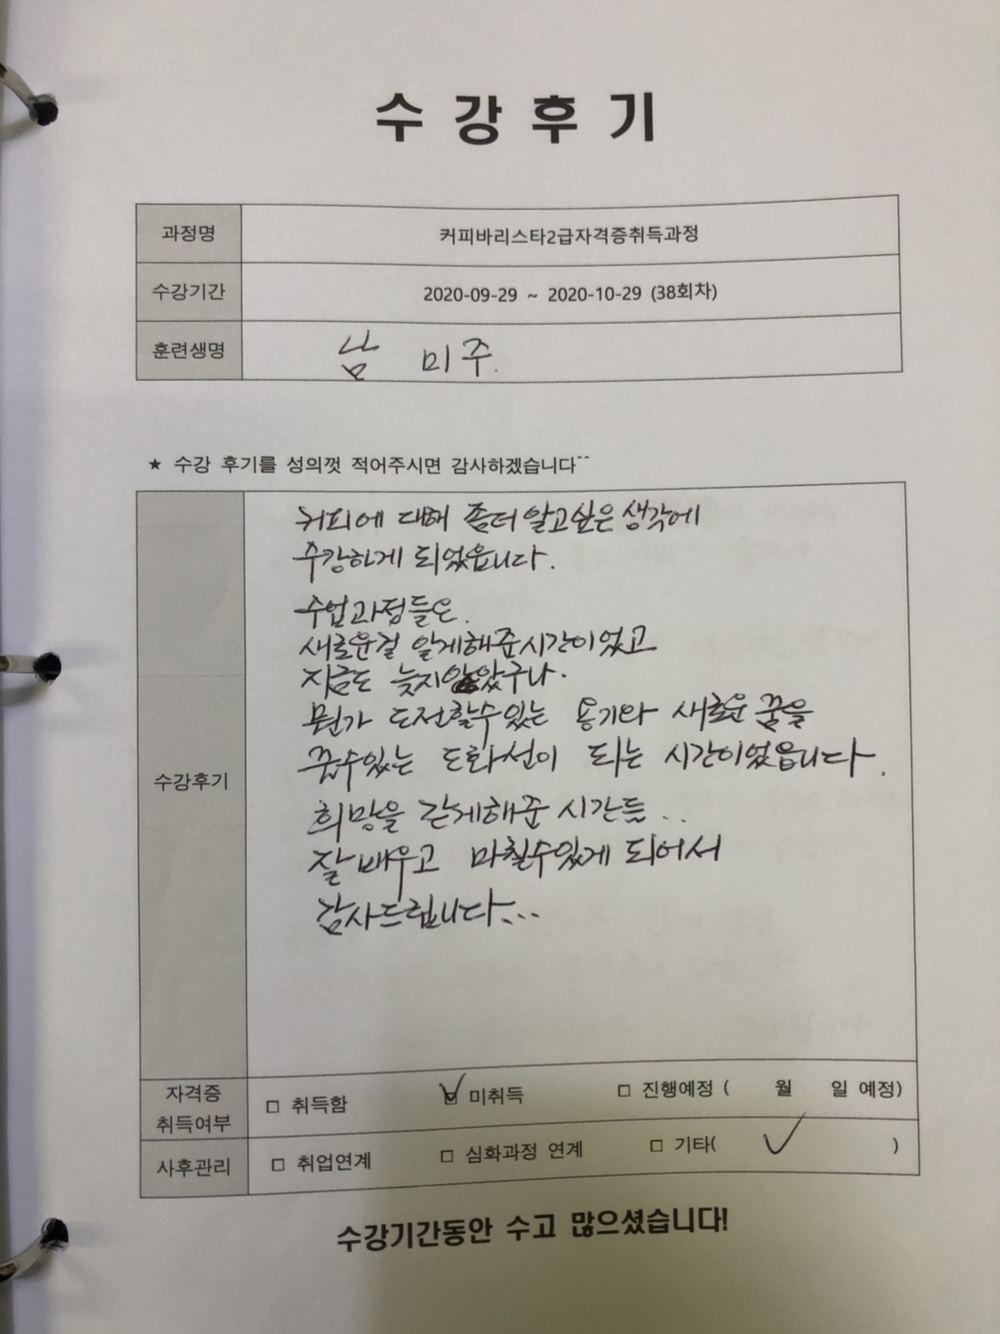 수강후기
과정명 커피바리스타2급자격증취득과정
수강기간 2020-09-29 ~ 2020-10-29 (38회차)
훈련생명 남 미주.
★ 수강 후기를 성의껏 적어주시면 감사하겠습니다^^
커피에 대해 좀더 알고싶은 생각에
수강하게 되었읍니다.
수업과정들은.
새로운걸 알게해준시간이었고
지금도 늦지않았구나.
뭔가 도전할수있는 용기와 새로운 꿈을
꿈수있는 도화선이 되는 시간이었읍니다.
수강후기
희망을 갇게해준 시간들..
잘배우고 마칠수있게 되어서
감사드립니다...
자격증
취득여부 □ 취득함 ☑ 미취득 □ 진행예정 ( 월 일 예정)
사후관리 □ 취업연계 □ 심화과정 연계 □ 기타( ✓ )
수강기간동안 수고 많으셨습니다!